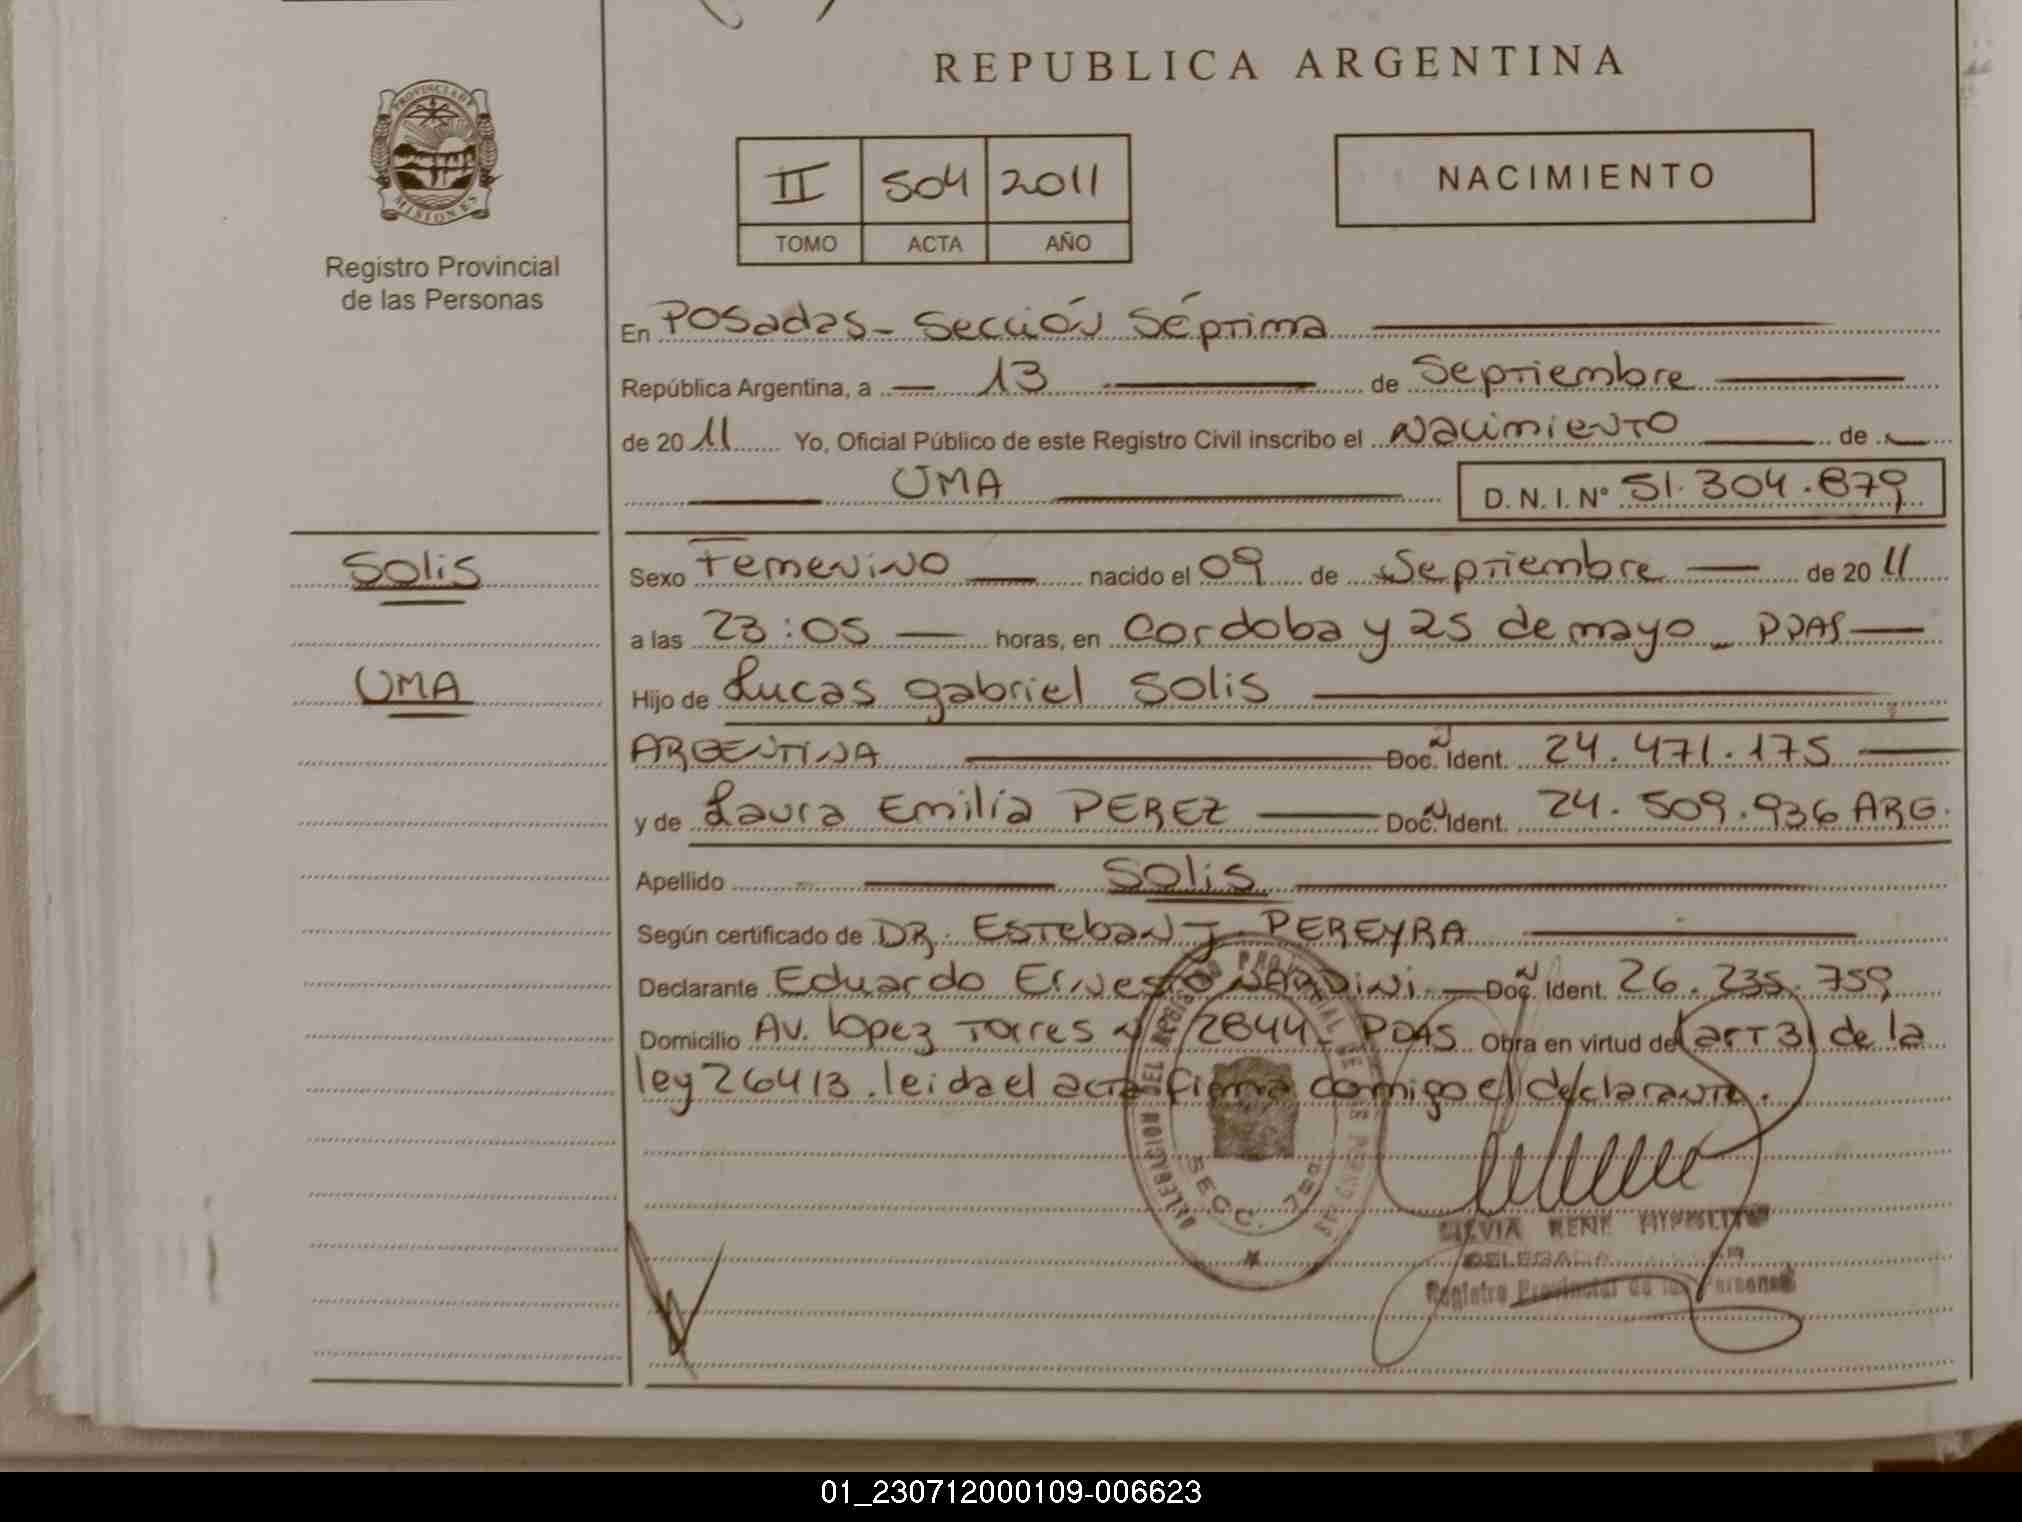 REPUBLICA ARGENTINA
PROVINCIA DE MISIONES
Registro Provincial
de las Personas
II 504 2011
TOMO ACTA AÑO
NACIMIENTO
En Posadas - Sección Séptima
República Argentina, a 13 de Septiembre
de 2011 Yo, Oficial Público de este Registro Civil inscribo el Nacimiento de
UMA D.N.I. N° 51.304.879
Solis
UMA
Sexo Femenino nacido el 09 de Septiembre de 2011
a las 23:05 horas, en Cordoba y 25 de mayo - PDAS
Hijo de Lucas gabriel Solis
ARGENTINA Doc. Ident. 24.471.175
y de Laura Emilia PEREZ Doc. Ident. 24.509.936 ARG.
Apellido Solis
Según certificado de DR. Esteban J. PEREYRA
Declarante Eduardo Ernesto NARDINI Doc. Ident. 26.235.759
Domicilio Av. Lopez Torres N 2844 PDAS Obra en virtud del art 31 de la
ley 26413. leida el acta firma comigo el declarante.
DELEGACION DEL REGISTRO PROVINCIAL DE LAS PERSONAS
SECC. 7ma
SILVIA RENE
DELEGADA
Registro Provincial de las Personas
01_230712000109-006623